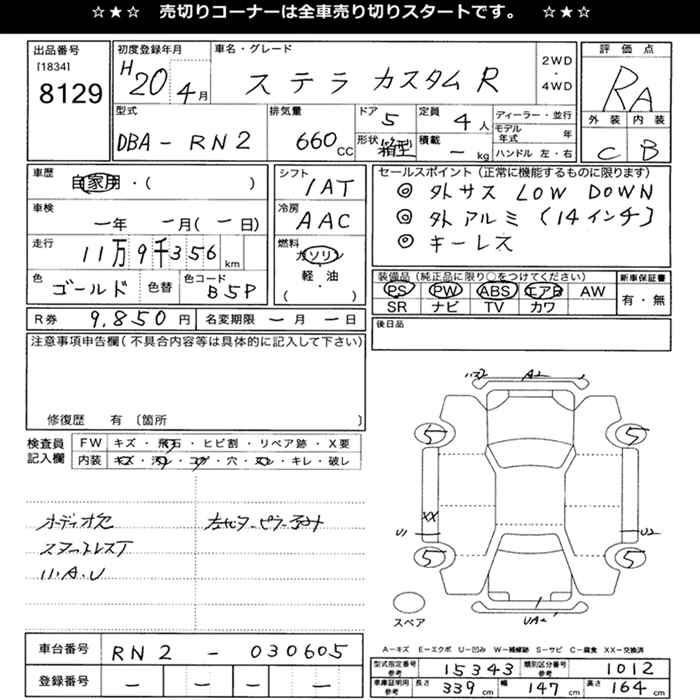 ☆★☆ 売切りコーナーは全車売り切りスタートです。 ☆★☆
出品番号
[1834]
8129
初度登録年月
H20 4月
車名・グレード
ステラ カスタム R
2WD
・
4WD
評価点
RA
外装 内装
C B
型式
DBA - RN2
排気量
660 CC
ドア 5
形状 箱型
定員 4 人
積載 ー kg
ディーラー・並行
モデル年式 年
ハンドル 左・右
車歴
自家用・( )
車検
ー年 ー月(ー日)
走行
11万9千356 km
色
ゴールド
色替
色コード
B5P
シフト
IAT
冷房
AAC
燃料
ガソリン
軽・油
( )
セールスポイント(正常に機能するものに限ります)
◎ 外サス LOW DOWN
◎ 外アルミ (14インチ)
◎ キーレス
装備品(純正品に限り○をつけてください)
PS PW ABS エアB AW
SR ナビ TV カワ
新車保証書
有・無
後日品
R券 9,850円 名変期限 ー月 ー日
注意事項申告欄(不具合内容等は具体的に記入して下さい)
修復歴 有 〔箇所 〕
検査員
記入欄
FW キズ・飛石・ヒビ割・リペア跡・X要
内装 キズ・汚れ・コゲ・穴・ヌレ・キレ・破し
A2
5 5
XX
U1 U2
5 5
スペア
UA2
小A.U
A－キズ E－エクボ U－凹み W－補修跡 S－サビ C－腐食 XX－交換済
車台番号 RN2 - 030605
登録番号 ー ー ー ー
型式指定番号
参考 15343
類別区分番号
参考 1012
車庫証明用
参考 長さ 339 cm 幅 147 cm 高さ 164 cm